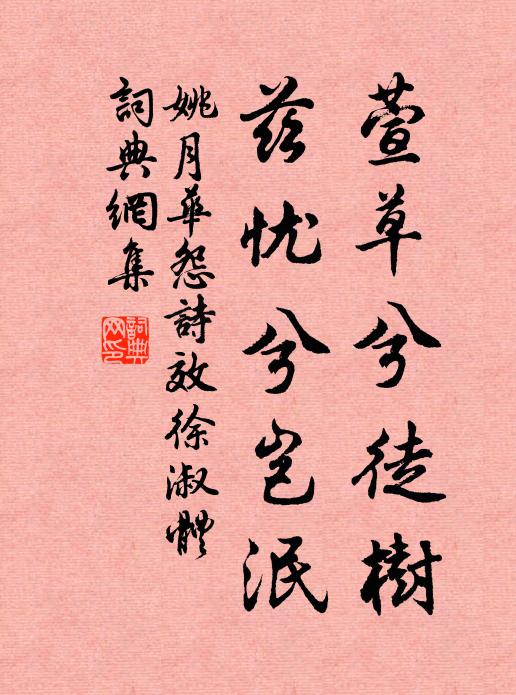 萱草兮徒樹
茲忧兮岂泯
姚月華怨詩效徐淑體
詞典網集
詞典網印